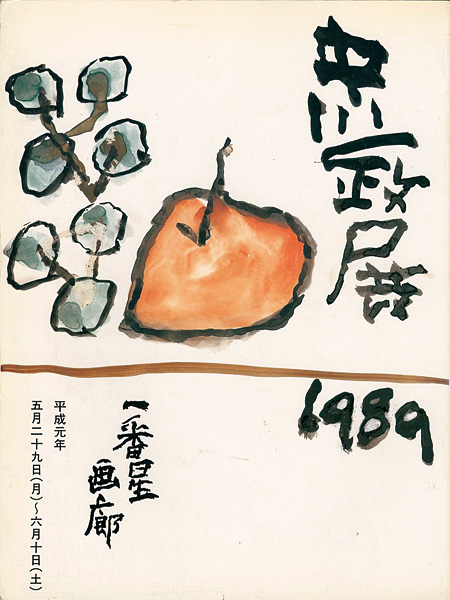 中川一政展
1989
一番星
画廊
平成元年
五月二十九日(月)〜六月十日(土)